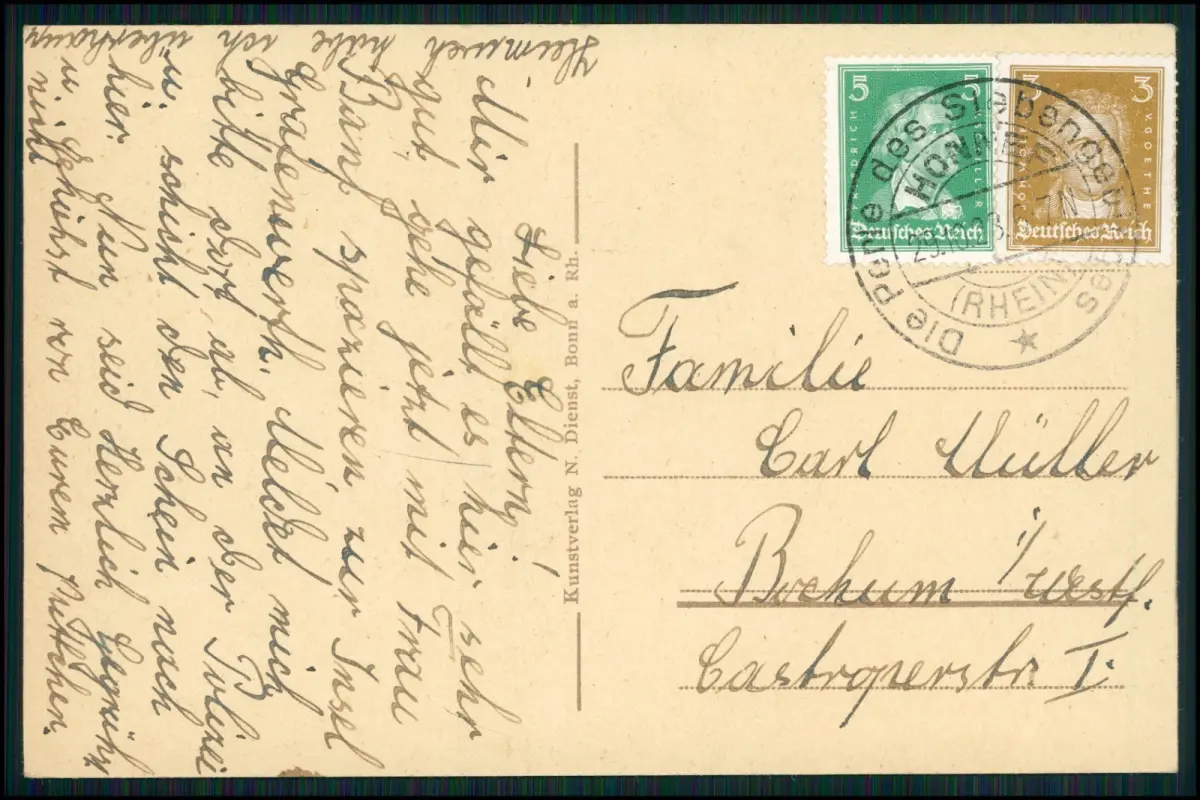 Heimweh habe ich überhaupt
Liebe Eltern!
Mir gefällt es hier sehr
gut, gehe jetzt mit Frau
Banf spazieren zur Insel
Grafenwerth. Meldet mich
bitte dort ab, an der Polizei
u. schickt den Schein nach
hier. Nun seid Herzlich Gegrüßt
u. Geküsst von Eurem
nicht
Kunstverlag N. Dienst, Bonn a. Rh.
5 5
FRIEDRICH
Deutsches Reich
3 3
J.W.V.GOETHE
Deutsches Reich
Die Perle des Siebengeb
HONNEF
(RHEIN)
Familie
Carl Müller
Bochum i/Westf.
Castroperstr. I.